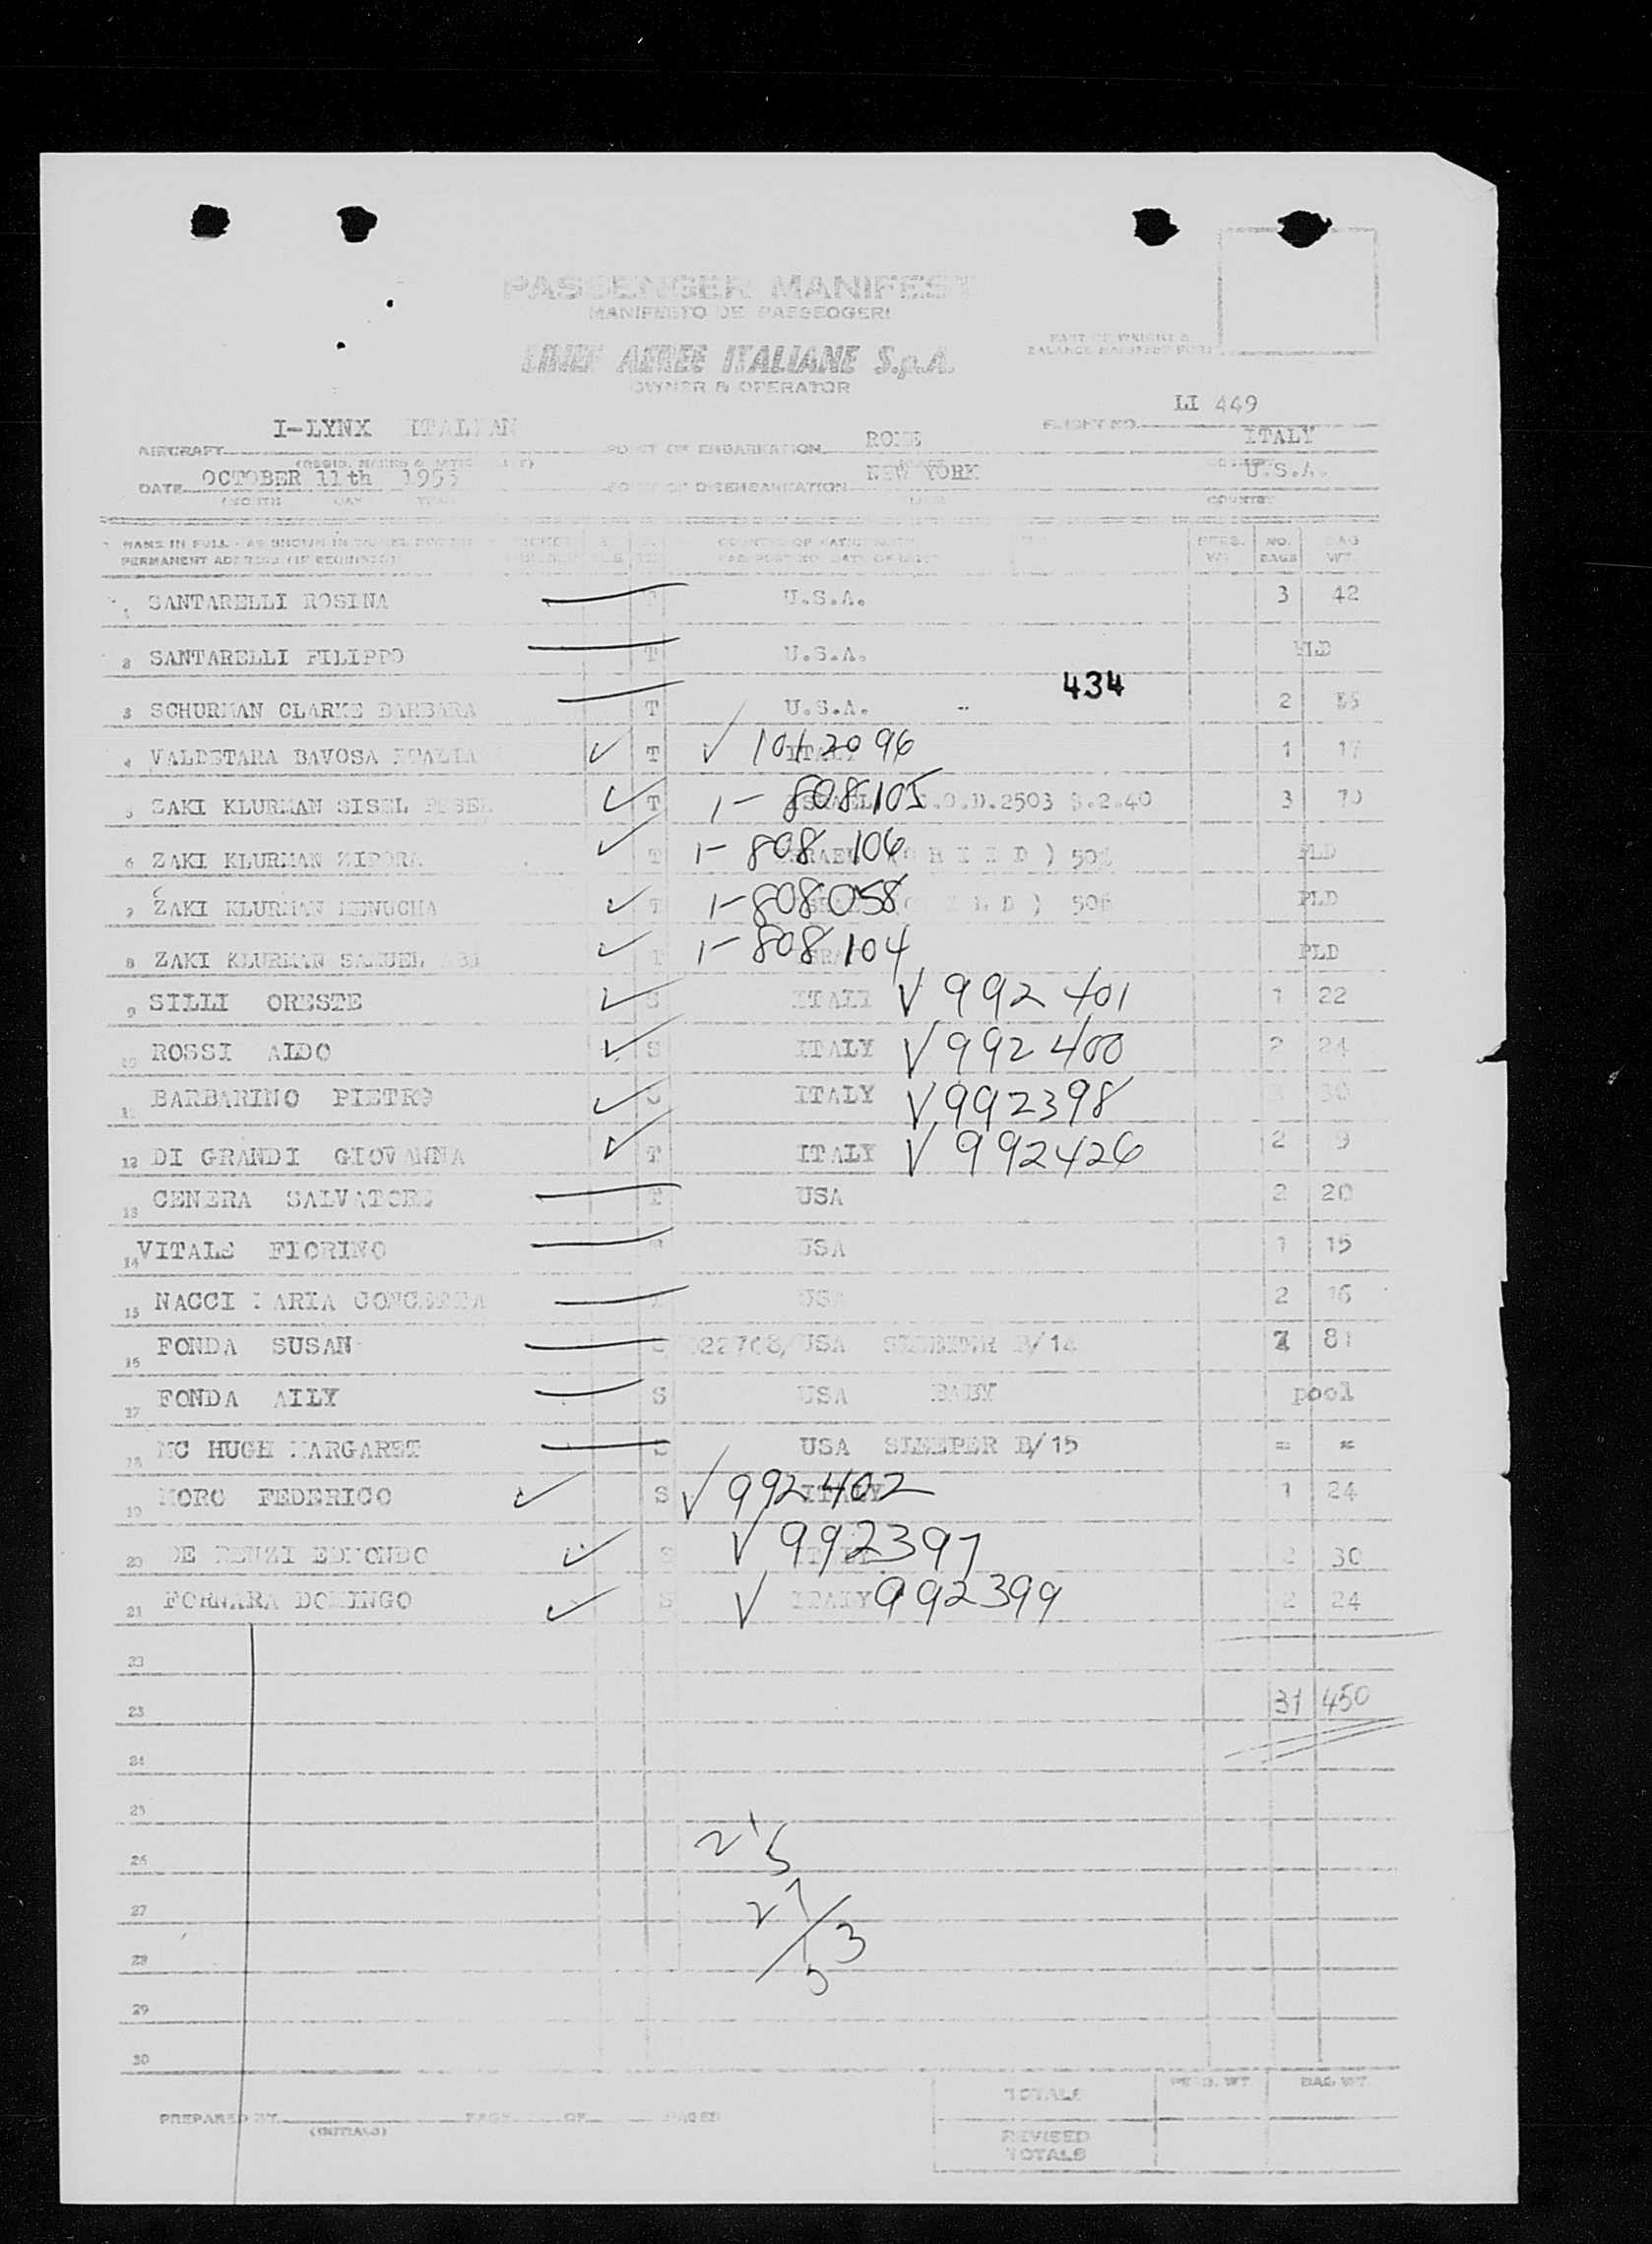 PASSENGER MANIFEST
MANIFESTO DE PASSEGGERI
LINEE AEREE ITALIANE S.p.A.
OWNER & OPERATOR
PART OF WEIGHT &
BALANCE MANIFEST
LI 449
FLIGHT NO.
I-LYNX ITALIAN
AIRCRAFT
POINT OF EMBARKATION ROME ITALY
OCTOBER 11th 1955
DATE
POINT OF DISEMBARKATION NEW YORK U.S.A.
(MONTH DAY YEAR COUNTRY
NAME IN FULL - AS SHOWN IN TRAVEL PERS. NO. BAG
PERMANENT ADDRESS (IF REQUIRED) WT. BAGS WT.
1 SANTARELLI ROSINA T U.S.A. 3 42
2 SANTARELLI FILIPPO T U.S.A. PLD
434
3 SCHURMAN CLARKE BARBARA T U.S.A. 2
4 VALDETARA BAVOSA ITALIA ✓ T ✓ 1012096 ITALY 1 17
5 ZAKI KLURMAN SISEL ✓ T 1-808105 ISRAEL .O.D.2503 S.2.40 3 70
6 ZAKI KLURMAN ZIPORA ✓ T 1-808 106 ISRAEL (CHILD) 50% PLD
7 ZAKI KLURMAN MENUCHA ✓ T 1-808058 50% PLD
8 ZAKI KLURMAN SAMUEL ✓ T 1-808104 PLD
9 SILLI ORESTE ✓ S ITALY √ 992401 1 22
10 ROSSI ALDO ✓ S ITALY √ 992400 2 24
11 BARBARINO PIETRO ✓ S ITALY √ 992398 30
12 DI GRANDI GIOVANNA ✓ T ITALY √ 992426 2 9
13 CENERA SALVATORE T USA 2 20
14 VITALE FIORINO T USA 1 15
15 NACCI MARIA CONCETTA USA 2 16
16 FONDA SUSAN S USA SLEEPER B/14 81
17 FONDA AILY S USA BABY pool
18 MC HUGH MARGARET S USA SLEEPER B/15 = =
19 MORO FEDERICO ✓ S √ 992402 ITALY 1 24
20 DE RENZI EDMONDO ✓ S √ 992397 2 30
21 FORNARA DOMINGO ✓ S √ ITALY 992399 2 24
22
23 31 450
24
25
26
27
28
29
30
TOTALS PERS. WT BAG WT
PREPARED BY PAGE OF PAGES
(INITIALS)
REVISED
TOTALS